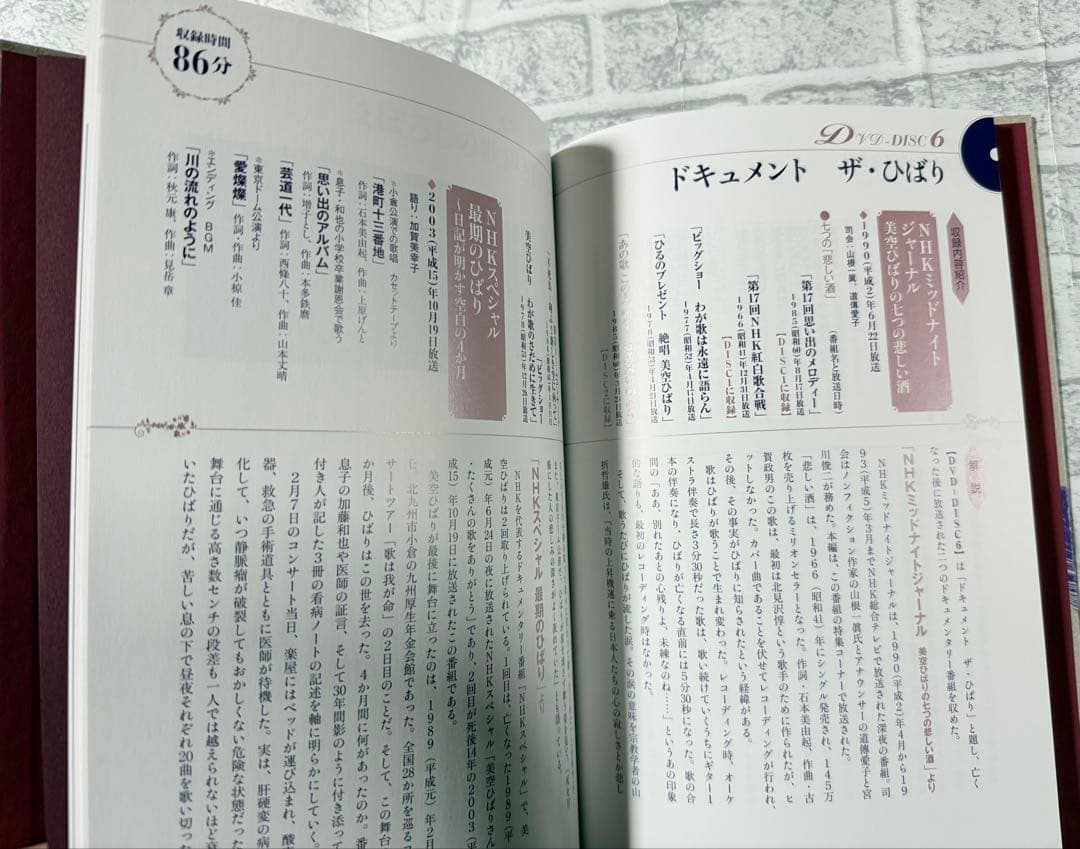 DVD-DISC 6
ドキュメント ザ・ひばり
収録内容紹介
NHKミッドナイト
ジャーナル
美空ひばりの七つの悲しい酒
◆1990(平成2)年6月22日放送
司会：山根一眞、道傳愛子
●七つの「悲しい酒」
(番組名と放送日時)
「第17回思い出のメロディー」
1985(昭和60)年8月17日放送
【DISC1に収録】
「第17回NHK紅白歌合戦」
1966(昭和41)年12月31日放送
【DISC1に収録】
「ビッグショー わが歌は永遠に語らん」
1977(昭和52)年4月17日放送
「ひるのプレゼント 絶唱 美空ひばり」
1978(昭和53)年4月21日放送
解説
【DVD-DISC6】は「ドキュメント ザ・ひばり」と題し、亡く
なった後に放送された二つのドキュメンタリー番組を収めた。
「NHKミッドナイトジャーナル 美空ひばりの七つの悲しい酒」より
NHKミッドナイトジャーナルは、1990(平成2)年4月から19
93(平成5)年3月までNHK総合テレビで放送された深夜の番組。司
会はノンフィクション作家の山根一眞氏とアナウンサーの道傳愛子と宮
川俊二が務めた。本編は、この番組の特集コーナーで放送された。
「悲しい酒」は、1966(昭和41)年にシングル発売され、145万
枚を売り上げるミリオンセラーとなった。作詞・石本美由起、作曲・古
賀政男のこの歌は、最初は北見沢惇という歌手のために作られたが、ヒ
ットしなかった。カバー曲であることを伏せてレコーディングが行われ、
その後、その事実がひばりに知らされたという経緯がある。
歌はひばりが歌うことで生まれ変わった。レコーディング時、オーケ
ストラ伴奏で長さ3分30秒だった歌は、歌い続けていくうちにギター1
本の伴奏になり、ひばりが亡くなる直前には5分30秒になった。歌の合
間の「ああ、別れたあとの心残りよ、未練なのね……」というあの印象
的な語りも、最初のレコーディング時はなかった。
そして、歌うたびにひばりが流した涙。その涙の意味を宗教学者の山
折哲雄氏は、「当時の上昇機運に乗る日本人たちの心の寂しさとか悲し
収録時間
86分
美空ひばり わが歌のさだめに生きて」
1978(昭和53)年12月26日放送
NHKスペシャル
最期のひばり
～日記が明かす空白の4か月～
◆2003(平成15)年10月19日放送
語り：加賀美幸子
※小倉公演での歌唱 カセットテープより
「港町十三番地」
作詞：石本美由起、作曲：上原げんと
※息子・和也の小学校卒業謝恩会で歌う
「思い出のアルバム」
作詞：増子とし、作曲：本多鉄麿
「芸道一代」 作詞：西條八十、作曲：山本丈晴
※東京ドーム公演より
「愛燦燦」 作詞・作曲：小椋佳
※エンディング BGM
「川の流れのように」
作詞：秋元康、作曲：見岳章
「NHKスペシャル 最期のひばり」より
NHKを代表するドキュメンタリー番組「NHKスペシャル」で、美
空ひばりは2回取り上げられている。1回目は、亡くなった1989(平
成元)年6月24日の夜に放送されたNHKスペシャル「美空ひばりさん
・たくさんの歌をありがとう」であり、2回目が死後14年の2003(平
成15)年10月19日に放送されたこの番組である。
美空ひばりが最後に舞台に立ったのは、1989(平成元)年2月
、北九州市小倉の九州厚生年金会館であった。全国28か所を巡るコ
サートツアー「歌は我が命」の2日目のことだ。そして、この舞台
か月後、ひばりはこの世を去った。4か月間に何があったのか。番
息子の加藤和也や医師の証言、そして30年間影のように付き添って
付き人が記した3冊の看病ノートの記述を軸に明らかにしていく。
2月7日のコンサート当日、楽屋にはベッドが運び込まれ、酸
器、救急の手術道具とともに医師が待機した。実は、肝硬変の病
化して、いつ静脈瘤が破裂してもおかしくない危険な状態だった
舞台に通じる高さ数センチの段差も一人では越えられないほど衰
いたひばりだが、苦しい息の下で昼夜それぞれ20曲を歌い切った